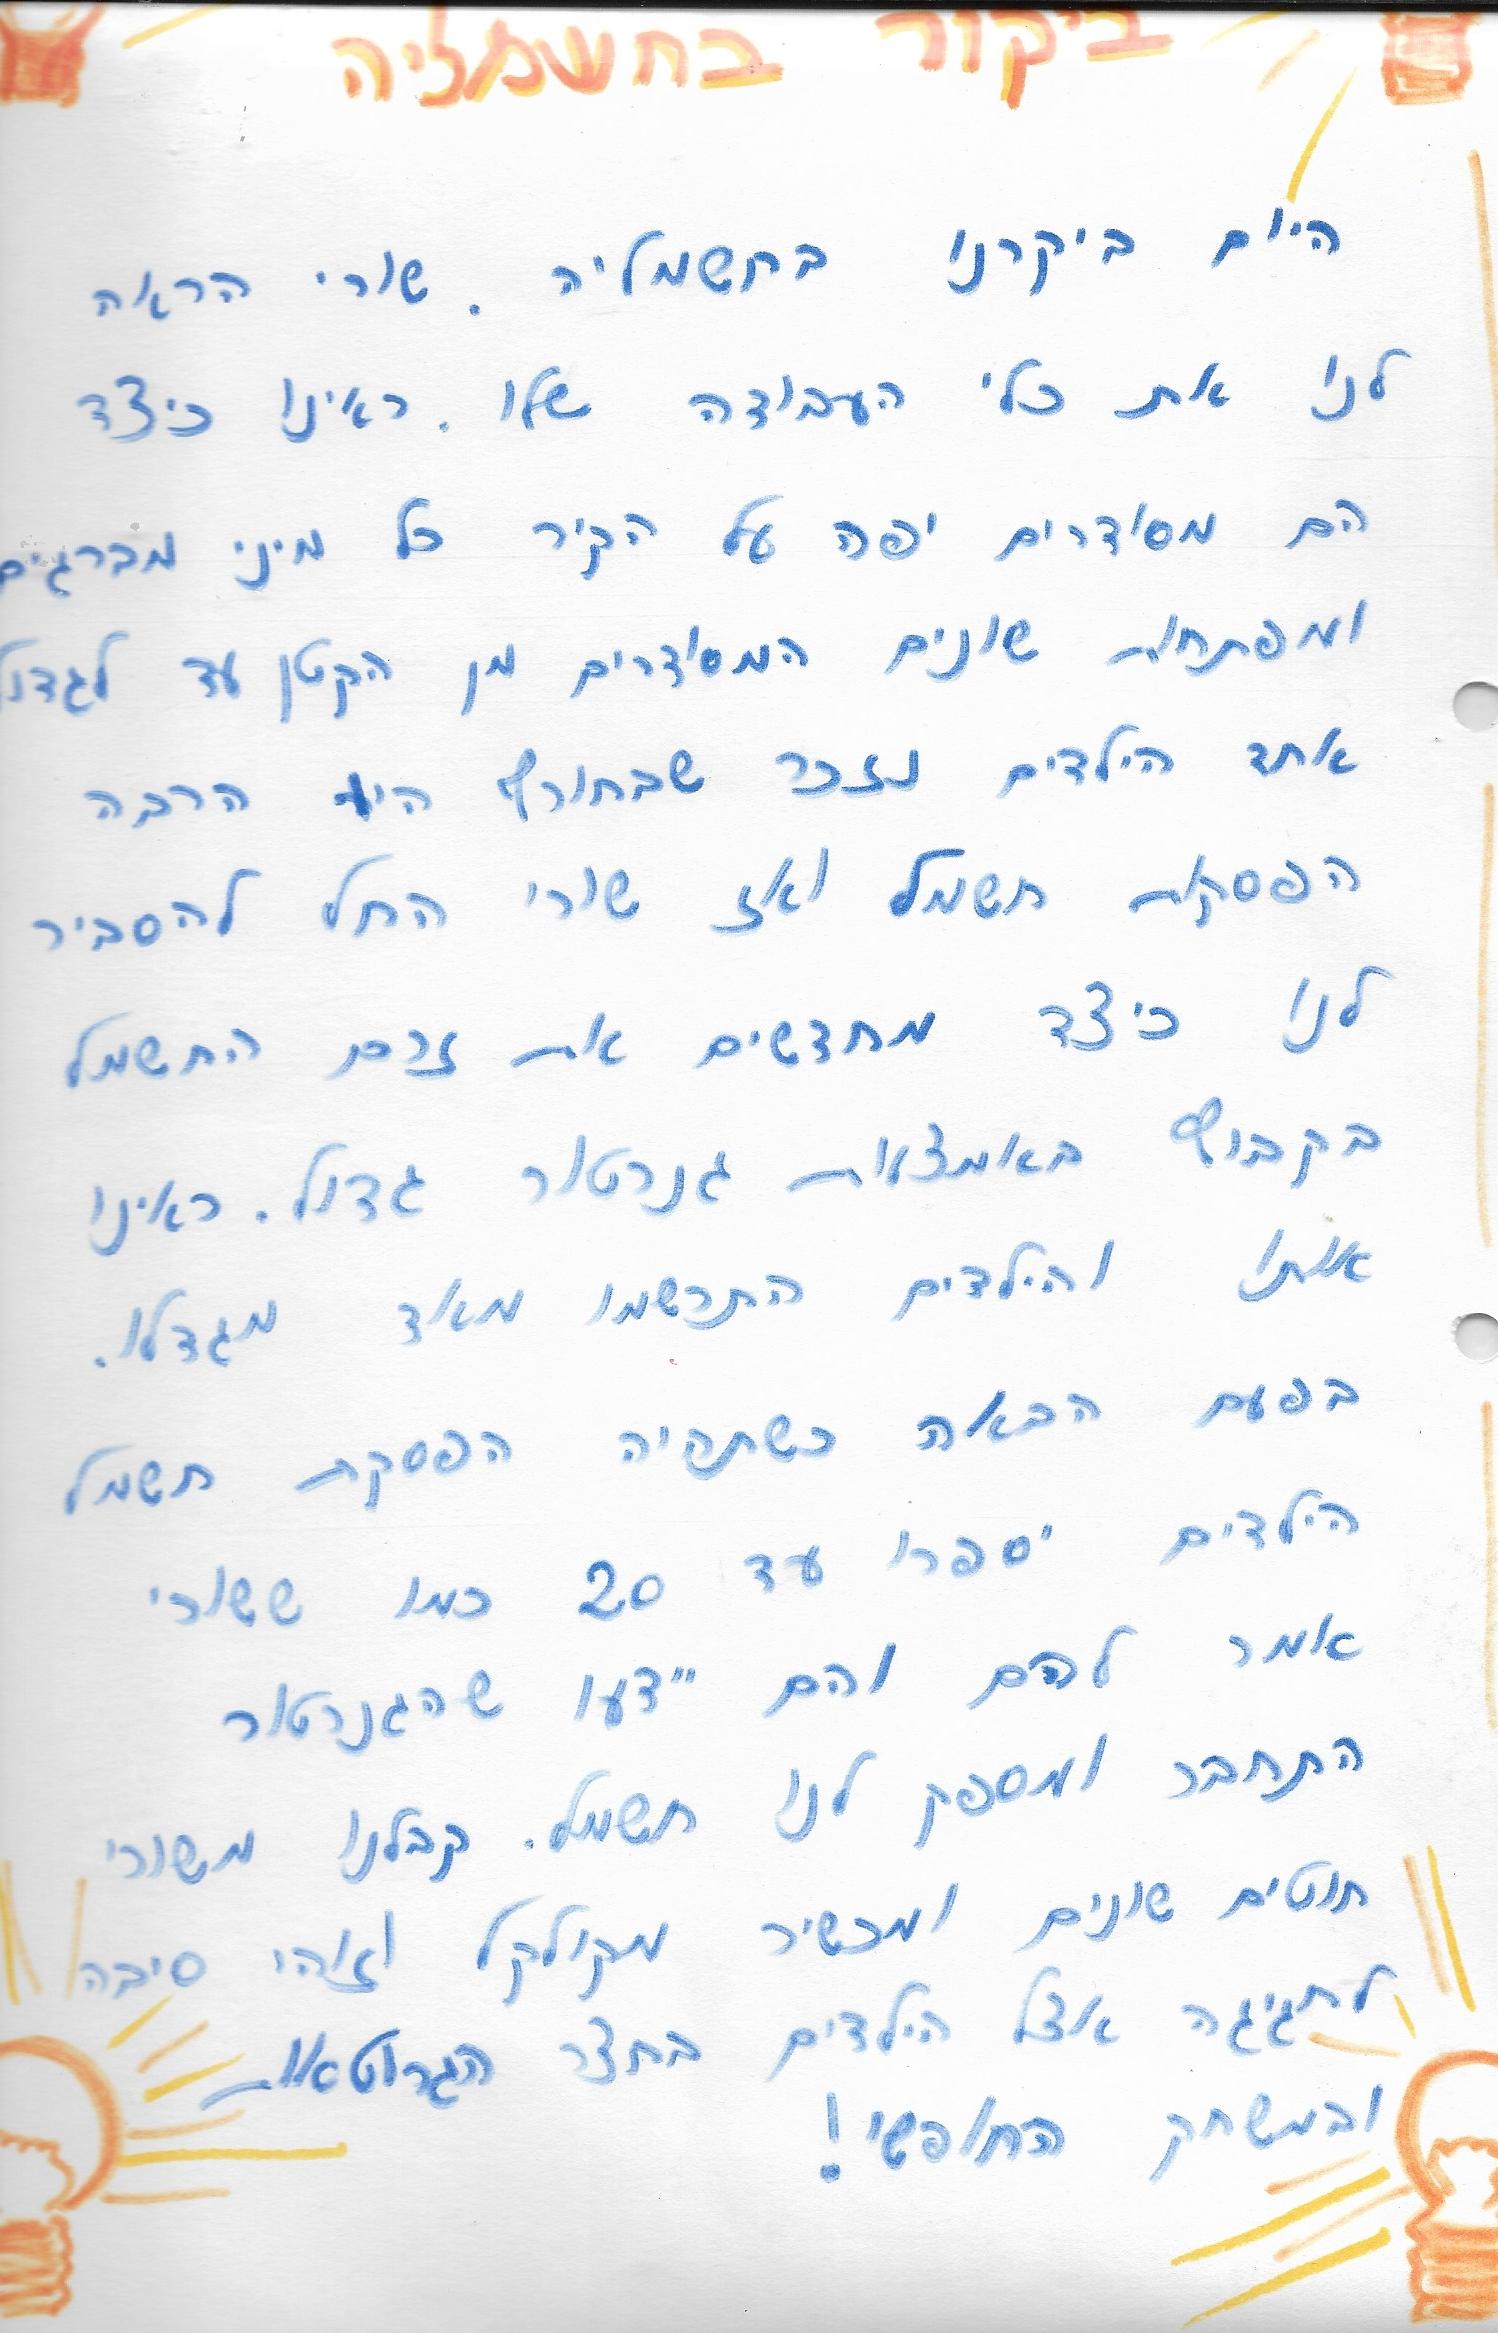 ביקור בחשמליה
היום ביקרנו בחשמליה. שורי הראה
לנו את כלי העבודה שלו. ראינו כיצד
הם מסודרים יפה על הקיר כל מיני מברגים
ומפתחות שונים המסודרים מן הקטן עד לגדול
אחד הילדים נזכר שבחורף היו הרבה
הפסקות חשמל ואז שורי החל להסביר
לנו כיצד מחדשים את זרם החשמל
בקבוץ באמצעות גנרטור גדול. ראינו
אותו והילדים התרשמו מאוד מגדלו.
בפעם הבאה כשתהיה הפסקת חשמל
הילדים יספרו עד 20 כמו ששורי
אמר להם והם יידעו שהגנרטור
התחבר ומספק לנו חשמל. קבלנו משורי
חוטים שונים ומכשיר מקולקל וזוהי סיבה
לחגיגה אצל הילדים בחצר הגרוטאות
ובמשחק החופשי!